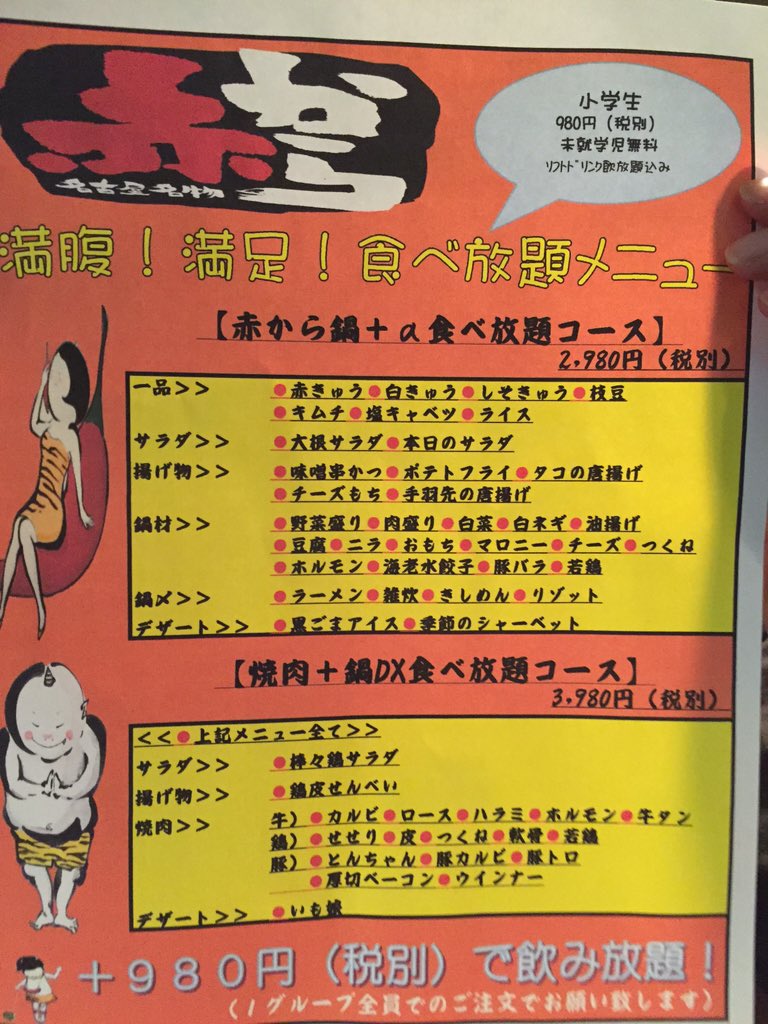 赤から
名古屋名物
小学生
980円（税別）
未就学児無料
ソフトドリンク飲放題込み
満腹！満足！食べ放題メニュー
【赤から鍋＋α食べ放題コース】
2,980円（税別）
一品＞＞ ●赤きゅう●白きゅう●しそきゅう●枝豆
●キムチ●塩キャベツ●ライス
サラダ＞＞ ●大根サラダ●本日のサラダ
揚げ物＞＞ ●味噌串かつ●ポテトフライ●タコの唐揚げ
●チーズもち●手羽先の唐揚げ
鍋材＞＞ ●野菜盛り●肉盛り●白菜●白ネギ●油揚げ
●豆腐●ニラ●おもち●マロニー●チーズ●つくね
●ホルモン●海老水餃子●豚バラ●若鶏
鍋〆＞＞ ●ラーメン●雑炊●きしめん●リゾット
デザート＞＞ ●黒ごまアイス●季節のシャーベット
【焼肉＋鍋DX食べ放題コース】
3,980円（税別）
＜＜●上記メニュー全て＞＞
サラダ＞＞ ●棒々鶏サラダ
揚げ物＞＞ ●鶏皮せんべい
焼肉＞＞ 牛）●カルビ●ロース●ハラミ●ホルモン●牛タン
鶏）●せせり●皮●つくね●軟骨●若鶏
豚）●とんちゃん●豚カルビ●豚トロ
●厚切ベーコン●ウインナー
デザート＞＞ ●いも娘
＋９８０円（税別）で飲み放題！
（１グループ全員でのご注文でお願い致します）